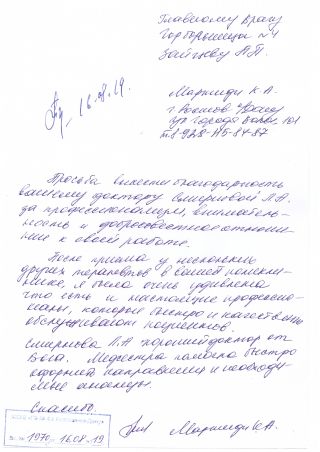 Главному врачу
Горбольницы №4
Зайцеву А.П.
16.8.19.
Маршиди К.А.
г. Ростов
Просьба вынести благодарность
вашему доктору Смирновой Л.А.
за профессионализм, внимательность
и добросовестное отношение
к своей работе.
После приема у нескольких
других терапевтов в вашей поликлинике,
я была очень удивлена
что есть и настоящие профессионалы,
которые быстро и качественно
обслуживают пациентов.
Смирнова Л.А хороший доктор от
Бога. Медсестра помогла быстро
оформить направления и необходимые
Спасибо.
1970 16.08.19
Маршиди К.А.